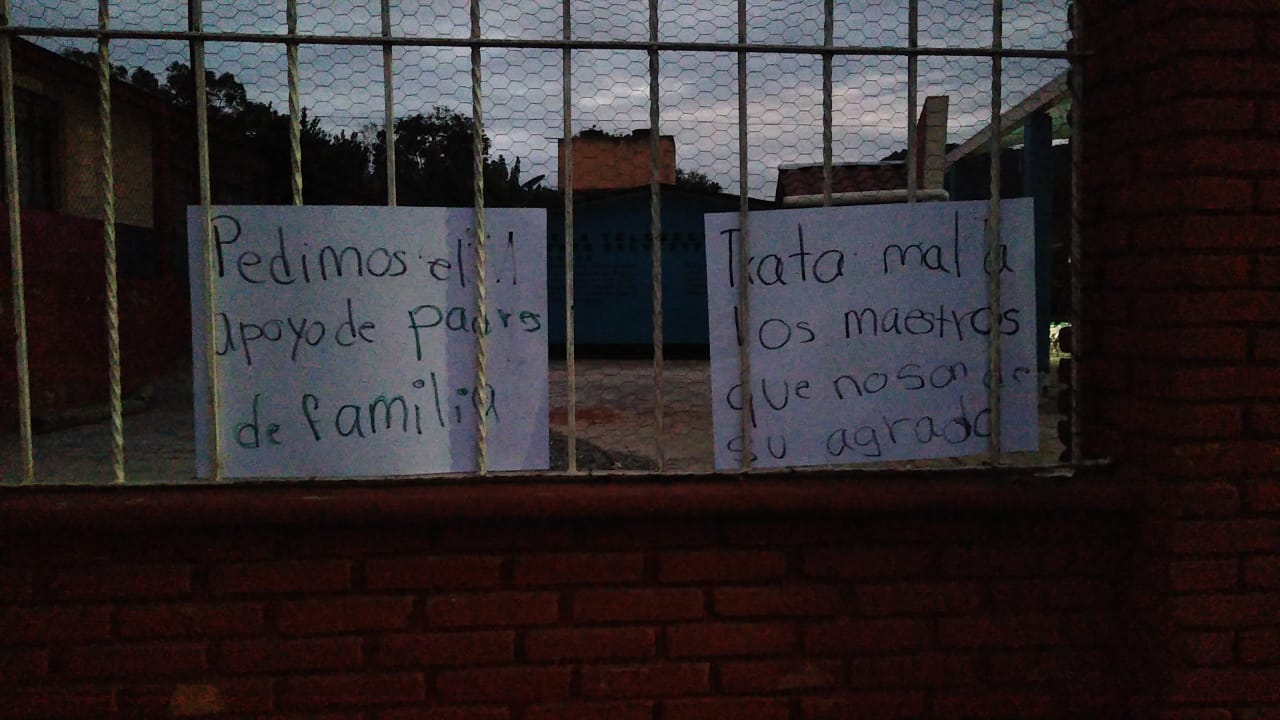 Pedimos el !!
apoyo de padres
de familia
Trata mal a
los maestros
que no son de
su agrado